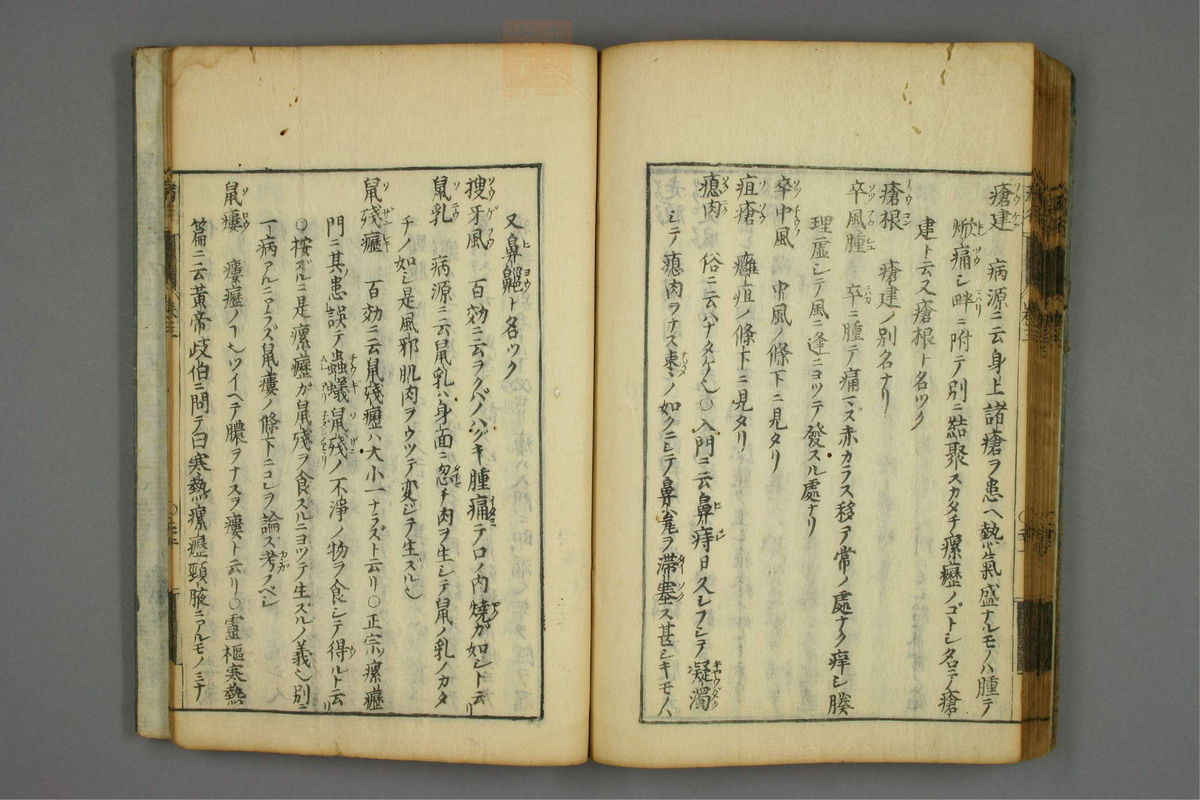 瘡建 病源ニ云身上諸瘡ヲ患ヘ熱氣盛ナルモノハ腫テ
焮痛シ畔ニ附テ別ニ結聚スカタチ瘰癧ノゴトシ名テ瘡
建ト云又瘡根ト名ツク
瘡根 瘡建ノ別名ナリ
卒風腫 卒ニ腫テ痛マズ赤カラス移ヿ常ノ處ナク痒シ腠
理虚シテ風ニ逢ニヨツテ發スル處ナリ
卒中風 中風ノ條下ニ見タリ
疽瘡 癰疽ノ條下ニ見タリ
瘜肉 俗ニ云ハナタケ也〇入門ニ云鼻痔日久シフシテ凝濁
シテ瘜肉ヲナス棗ノ如クニシテ鼻ヲ滞塞ス甚シキモノハ
又鼻齆ト名ツク
搜牙風 百効ニ云ヲクバノハグキ腫痛テロノ内燒ガ如シト云リ
鼠乳 病源ニ云鼠乳ハ身面ニ忽チ肉ヲ生シテ鼠ノ乳ノカタ
チノ如シ是風邪肌肉ヲウツテ変ジテ生ズル也
鼠殘癧 百効ニ云鼠殘癧ハ大小一ナラズト云リ〇正宗瘰癧
門ニ其患誤テ蟲蟻鼠殘ノ不淨ノ物ヲ食シテ得ルト云リ
〇按ズルニ是瘰癧ガ鼠殘ヲ食スルニヨツテ生ズルノ義也別ニ
一病アルニアラズ鼠瘻ノ條下ニコレヲ論ス考ノベシ
鼠瘻 瘻癧ノヿ也ツイヘテ膿ヲナスヲ瘻ト云リ〇靈樞寒熱
篇ニ云黄帝岐伯ニ問テ曰寒熱瘰癧頸腋ニアルモノ三ナ